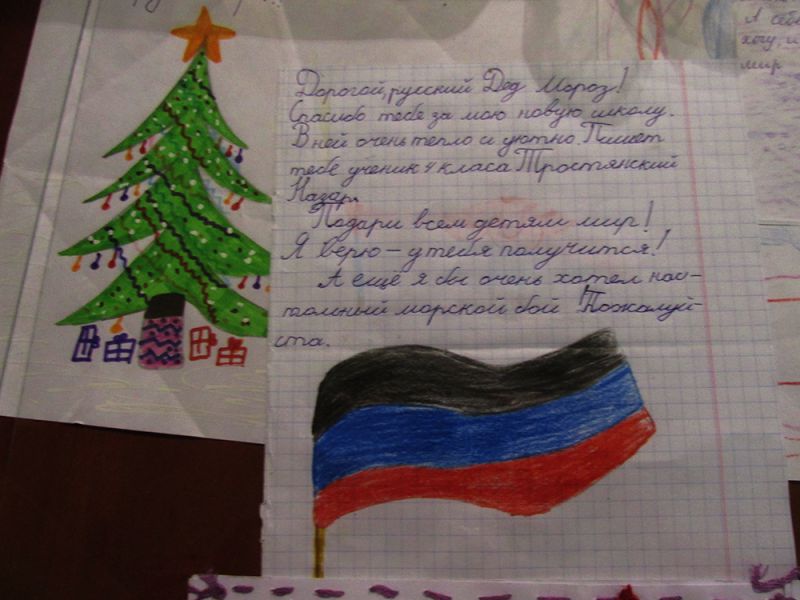 Дорогой, русский Дед Мороз!
Спасибо тебе за мою новую школу.
В ней очень тепло и уютно. Пишет
тебе ученик 4 класа Тростянский
Назар.
Подари всем детям мир!
Я верю – у тебя получится!
А ещё я бы очень хотел нас-
тольный морской бой. Пожалуй-
ста.
А себе
хочу, и
мир